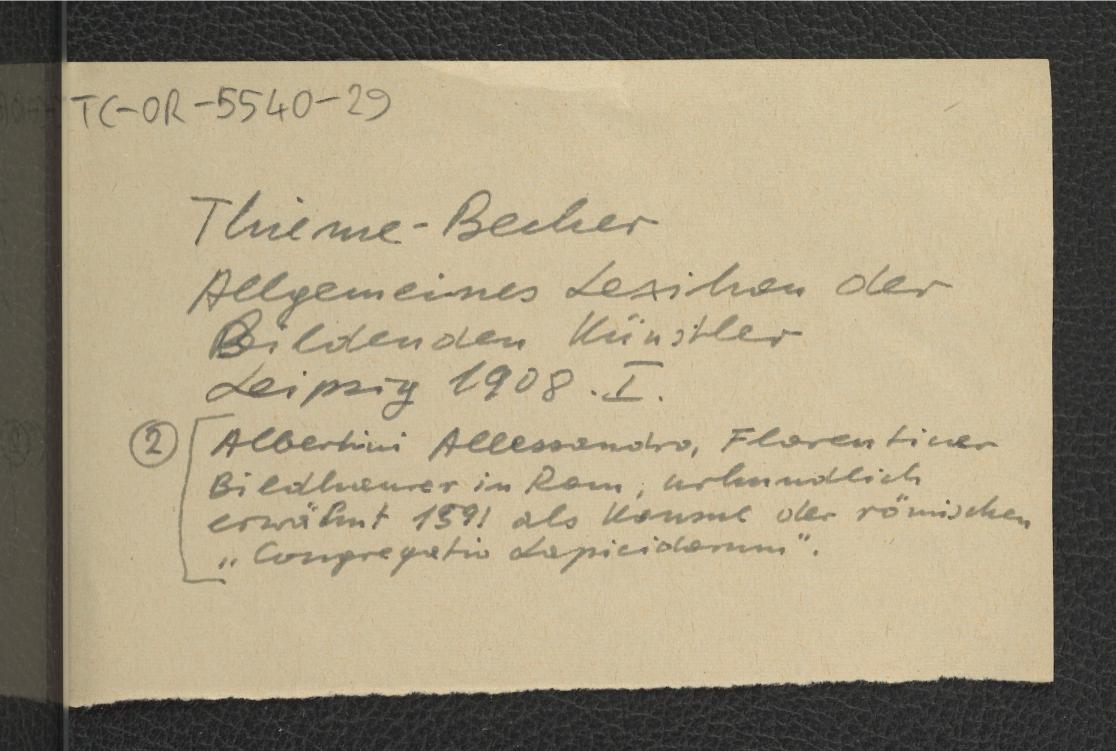 TC-OR-5540-29
Thieme-Becker
Allgemeines Lexikon der
Bildenden Künstler
Leipzig 1908. I.
② Albertini Allessandro, Florentiner
Bildhauer in Rom, urkundlich
erwähnt 1591 als Konsul der römischen
„Congregatio Lapicidarum".